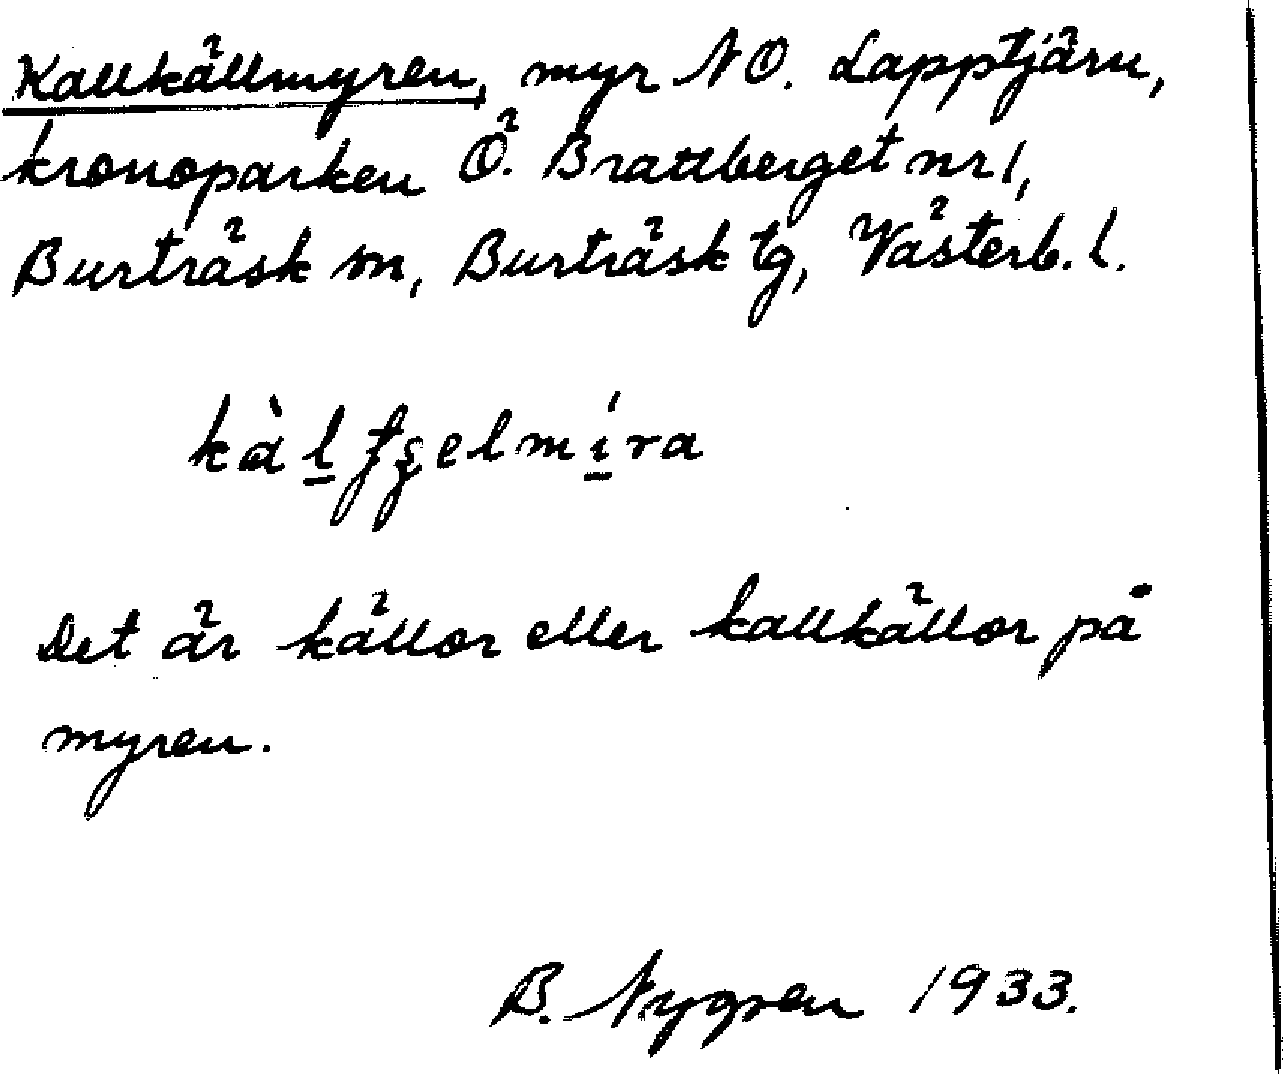 Kallkällmyren, myr NO. Lapptjärn,
kronoparken Ö. Brattberget nr 1,
Burträsk sn, Burträsk tg, Västerb. l.
kàl̠ʈʂelmí̠ra
Det är källor eller kallkällor på
myren.
B. Nygren 1933.